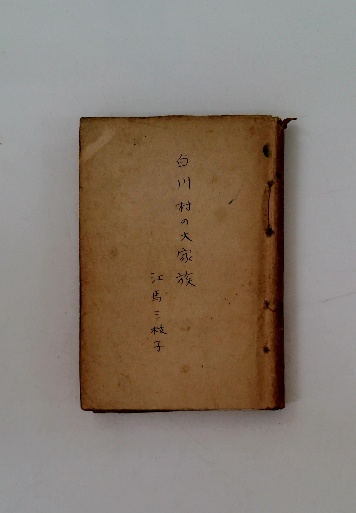 白川村の大家族
江馬三枝子